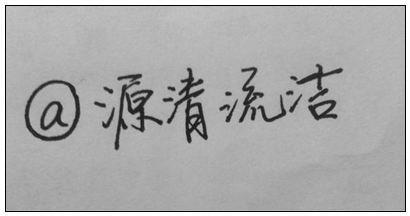 @源清流洁